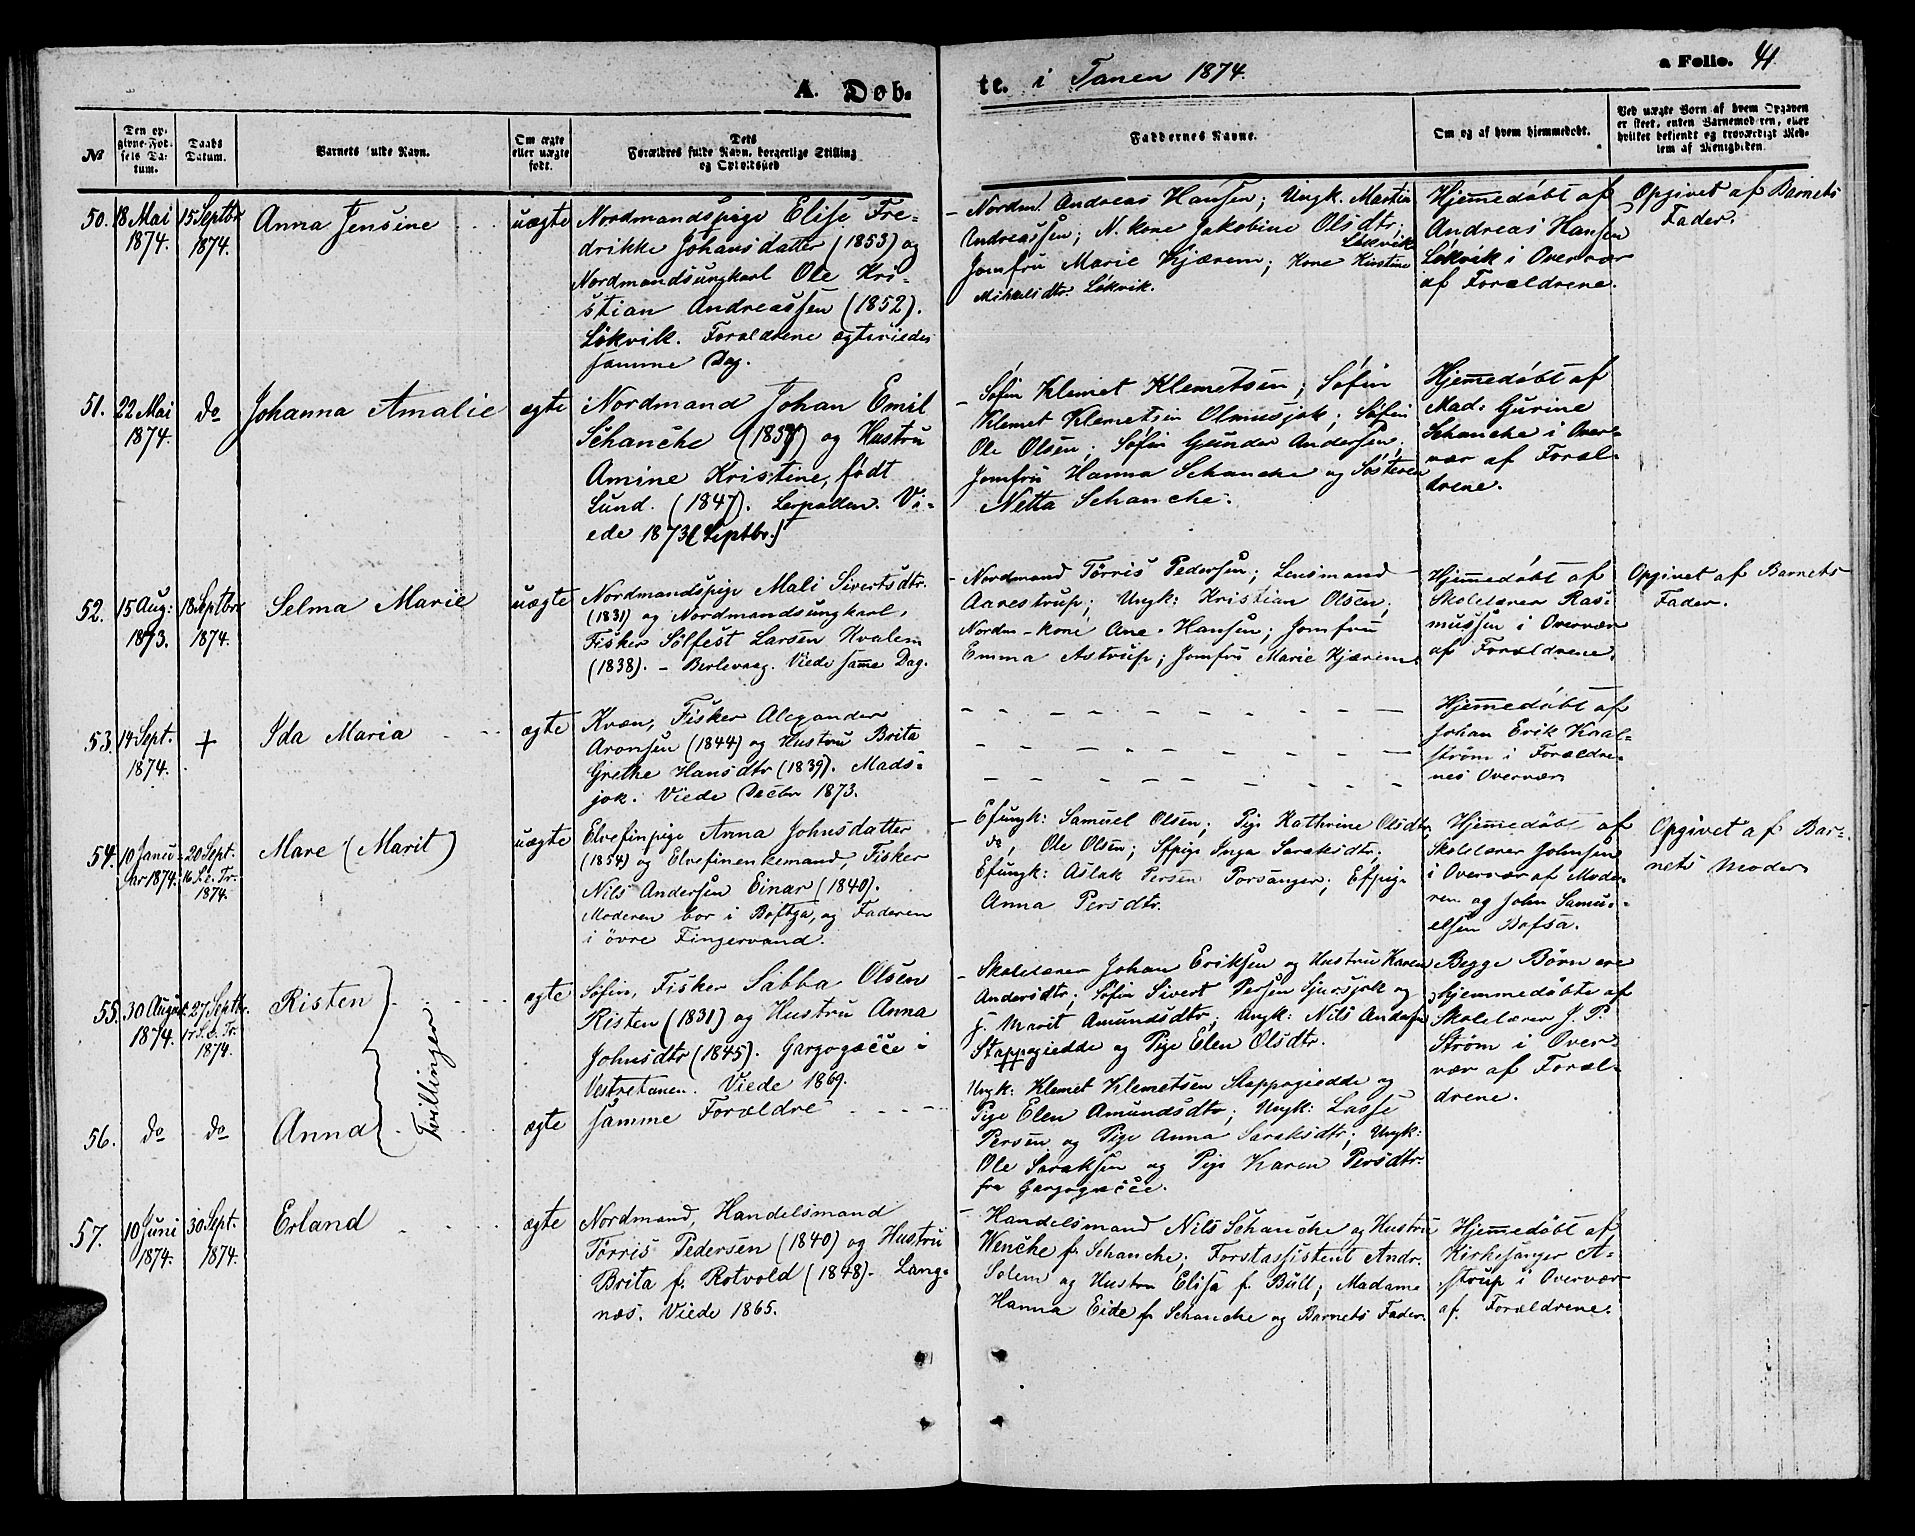 A. Døb-
te. i Tanen 1874.
a Folio. 41
№
Den op-
givne Fød-
sels Da-
tum.
Daabs
Datum.
Barnets fulde Navn.
Om ægte
eller uægte
født.
Dets
Forældres fulde Navn, borgerlige Stilling
og Opholdssted
Faddernes Navne.
Om og af hvem hjemmedøbt.
Ved uægte Børn af hvem Opgaven
er skeet, enten Barnemoderen, eller
hvilket bekjendt og troværdigt Med-
lem af Menigheden.
50.
18 Mai
1874.
15 Septbr
1874.
Anna Jensine
uægte
Nordmandspige Elise Fre-
drikke Johansdatter (1853) og
Nordmandsungkarl Ole Kri-
stian Andreassen (1852).
Løkvik. Forældrene ægteviedes
samme Dag.
Nordm. Andreas Hansen; Ungk. Martin
Andreassen; N. kone Jakobine Olsdtr.
Løkvik
Jomfru Marie Kjærem; Kone Kirstine
Mikkelsdtr. Løkvik.
Hjemmedøbt af
Andreas Hansen
Løkvik i Overvær
af Forældrene.
Opgivet af Barnets
Fader.
51.
22 Mai
1874.
do
Johanna Amalie
ægte
Nordmand Johan Emil
Schanche (1837) og Hustru
Amine Kristine, født
Lund. (1847). Leerpollen. Vi-
ede 1873 (Septbr.)
Søfin Klemet Klemetsen; Søfin
Klemet Klemetsen Olmusjok; Søfin
Ole Olsen; Søfin Gunder Andersen;
Jomfru Hanna Schanche og Søsteren
Netta Schanche.
Hjemmedøbt af
Mad. Gurine
Schanche i Over-
vær af Foræl-
drene.
52.
15 Aug:
1873.
18 Septbr
1874.
Selma Marie
uægte
Nordmandspige Mali Sivertsdtr.
(1831) og Nordmandsungkarl,
Fisker Sølfest Larsen Kvalem
(1838). - Berlevaag. Viede same Dag.
Nordmand Tørris Pedersen; Lensmand
Aarestrup; Ungk: Kristian Olsen;
Nordm-kone Ane Hansen; Jomfru
Emma Astrup; Jomfru Marie Kjærem.
Hjemmedøbt af
Skolelærer Ras-
mussen i Overvær
af Forældrene.
Opgivet af Barnets
Fader.
53.
14 Sept.
1874.
+
Ida Maria
ægte
Kvæn, Fisker Alexander
Aronsen (1844) og Hustru Brita
Grethe Hansdtr (1839). Mads-
jok. Viede Decbr 1873.
Hjemmedøbt af
Johan Erik Kaal-
strøm i Forældre-
nes Overvær
54.
10 Janu
ar 1874.
20 Sept.
16 S. e. Tr.
1874.
Mare (Marit)
uægte
Elvefinpige Anna Johnsdatter
(1854) og Elvefinenkemand, Fisker
Nils Andersen Einar (1840).
Moderen bor i Boftsa, og Faderen
i øvre Fingervand.
Efungk: Samuel Olsen; Pige Kathrine Olsdtr
do, Ole Olsen; Sfpige Inga Saraksdtr;
Efungk: Aslak Persen Porsanger; Efpige
Anna Persdtr.
Hjemmedøbt af
Skolelærer Johnsen
i Overvær af Mode-
ren og John Samu-
elsen Bofsa.
Opgivet af Bar-
nets Moder
55.
30 August
1874.
27 Septbr.
17 S. e. Tr.
1874.
Risten
Tvillinger
ægte
Søfin, Fisker Sabba Olsen
Risten (1831) og Hustru Anna
Johnsdtr (1845). Gargogæčče i
Vestretanen. Viede 1869.
Skolelærer Johan Eriksen og Hustru Karen
Andersdtr; Søfin Sivert Persen Sjursjok og
H. Marit Amundsdtr; Ungk: Nils Andersen
Stappogiedde og Pige Elen Olsdtr.
Begge Børn ere
hjemmedøbte af
Skolelærer J. P.
Strøm i Over-
vær af Foræl-
drene.
56.
do
do
Anna
ægte
samme Forældre
Ungk: Klemet Klemetsen Stappogiedde og
Pige Elen Amundsdtr; Ungk: Lasse
Persen og Pige Anna Saraksdtr; Ungk:
Ole Saraksen og Pige Karen Persdtr.
fra Gargogæčče.
57.
10 Juni
1874.
30 Sept.
1874.
Erland
ægte
Nordmand, Handelsmand
Tørris Pedersen (1840) og Hustru
Brita f. Rotvold (1848). Lang-
næs. Viede 1865.
Handelsmand Nils Schanche og Hustru
Wenche f. Schanche; Forstassistent Andr.
Solem og Hustru Elisa f. Bull; Madame
Hanna Eide f. Schanche og Barnets Fader.
Hjemmedøbt af
Kirkesanger A-
strup i Overvær
af Forældrene.